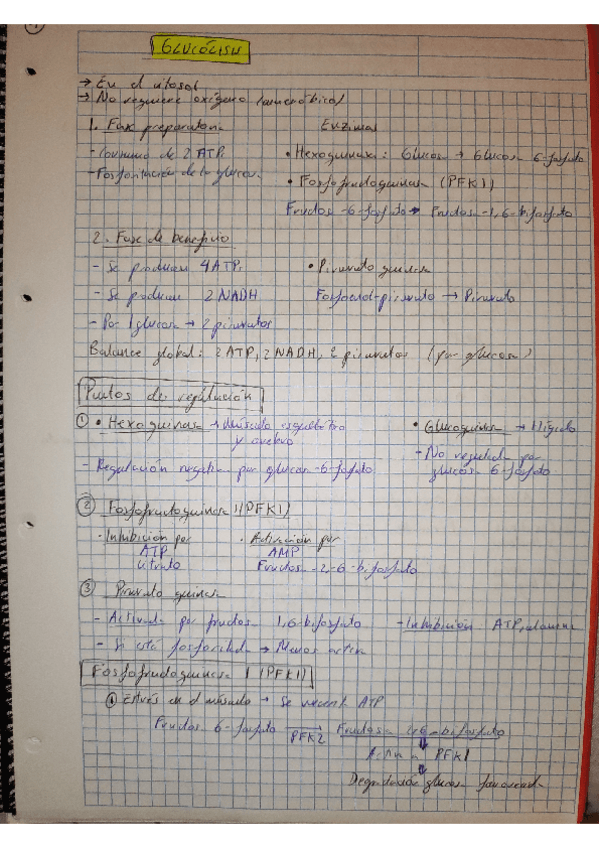 GLUCÓLISIS
→ En el citosol
→ No requiere oxígeno (anaeróbico)
1. Fase preparatoria
Enzimas
- Consumo de 2 ATP.
• Hexoquinasa: Glucosa → Glucosa 6-fosfato
- Fosforilación de la glucosa.
• Fosfofructoquinasa (PFK1)
Fructosa-6-fosfato → Fructosa-1,6-bifosfato
2. Fase de beneficio
- Se producen 4 ATP.
• Piruvato quinasa
- Se producen 2 NADH
Fosfoenol-piruvato → Piruvato
- Por 1 glucosa → 2 piruvatos
Balance global: 2 ATP, 2 NADH, 2 piruvatos (por glucosa)
Puntos de regulación
① • Hexoquinasa → Músculo esquelético
y cerebro
• Glucoquinasa → Hígado
- No regulada por
glucosa 6-fosfato
- Regulación negativa por glucosa-6-fosfato.
② Fosfofructoquinasa 1 (PFK1)
· Inhibición por
ATP
citrato
· Activación por
AMP
Fructosa-2,6-bifosfato
③ Piruvato quinasa
- Activada por fructosa 1,6-bifosfato
- Inhibición ATP, alanina
- Si está fosforilada → Menos activa
Fosfofructoquinasa 1 (PFK1)
① Estrés en el músculo → Se necesita ATP
Fructosa 6-fosfato → PFK2 Fructosa 2,6-bifosfato
↓
Activa a PFK1
↓
Degradación glucosa favorecida